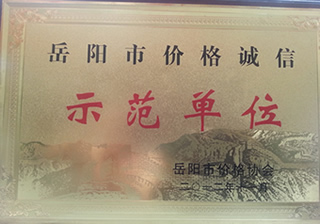 岳阳市价格诚信
示范单位
岳阳市价格协会
二〇一二年